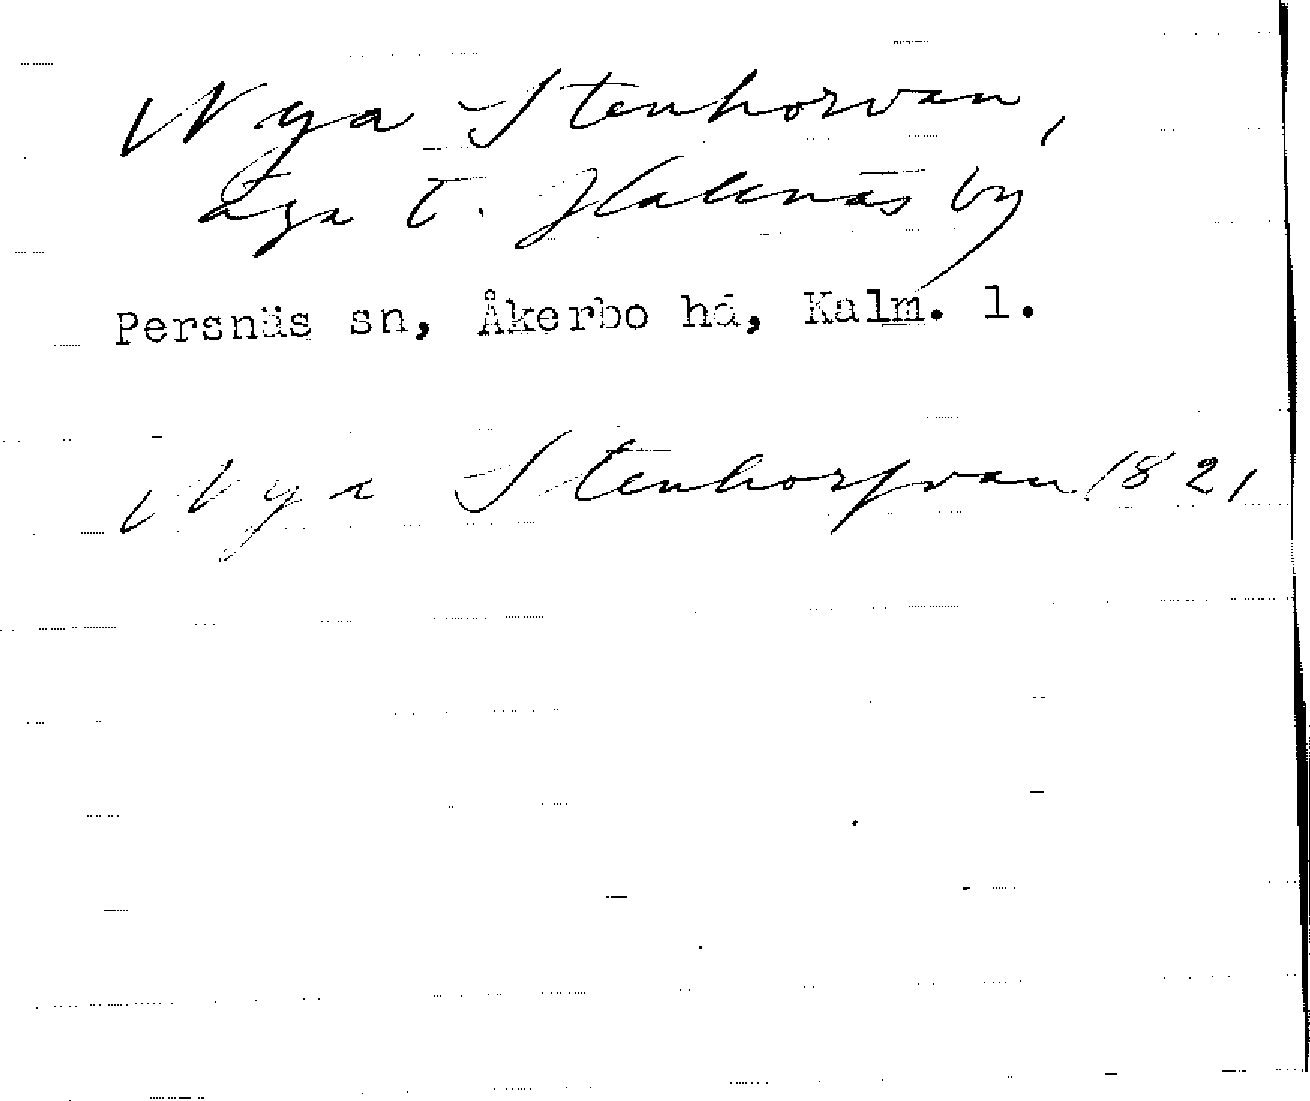 Nya Stenhorvan,
äga t. Halknäs by
Persnäs sn, Åkerbo hd, Kalm. l.
Nya Stenhorfvan 1821